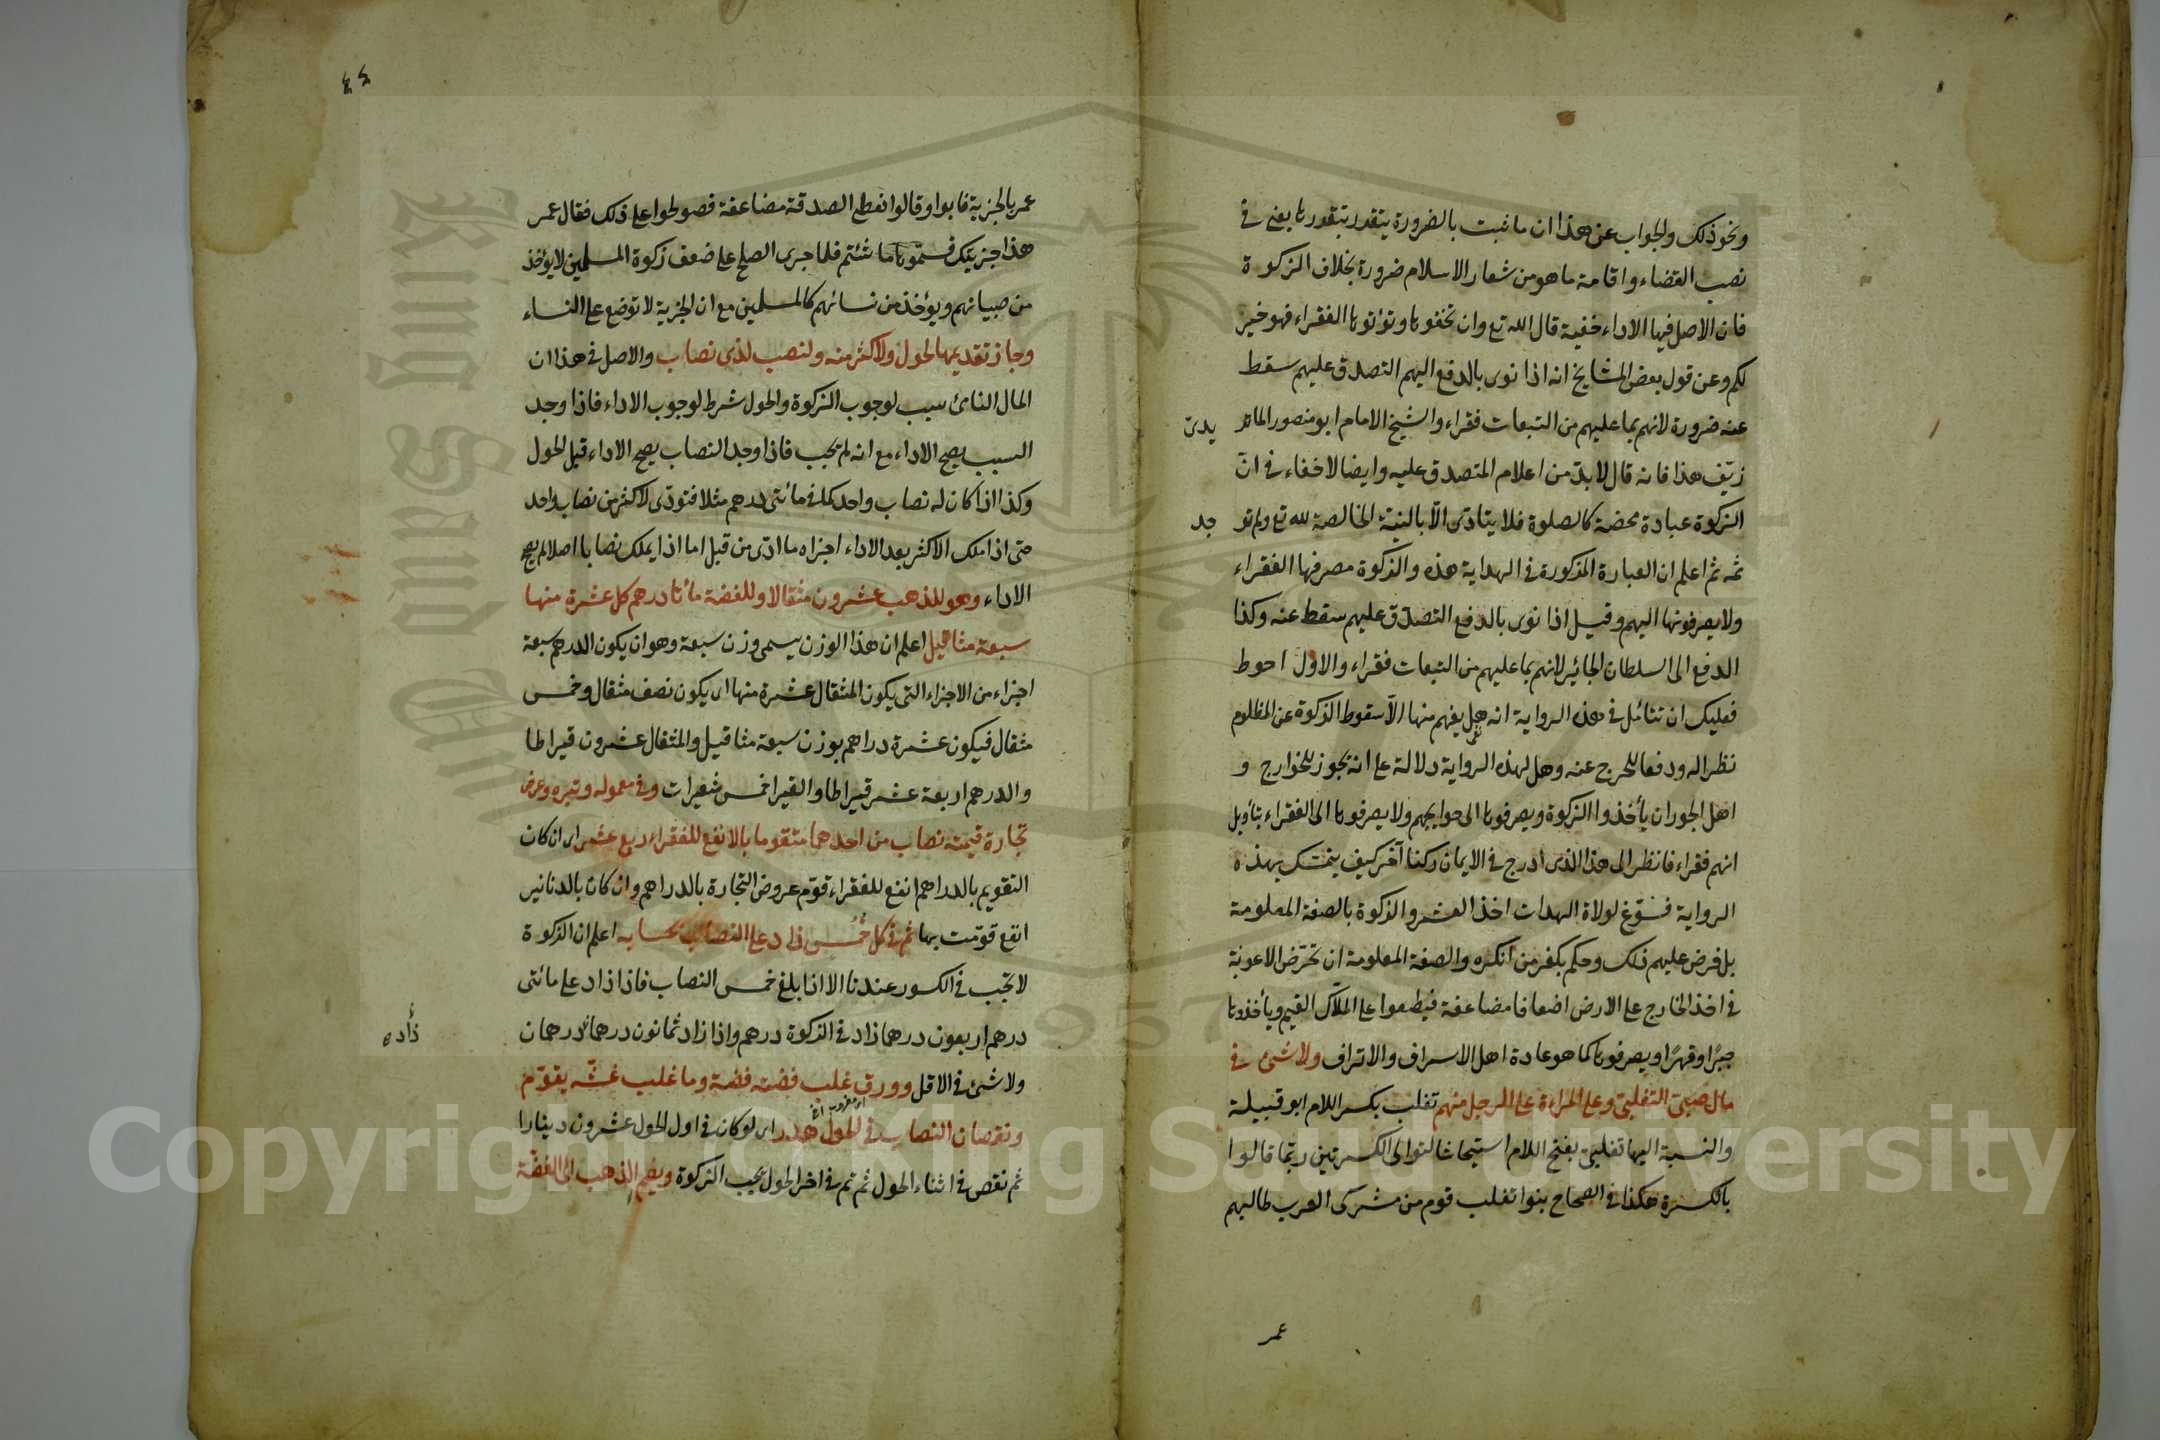 ونحو ذلك والجواب عن هذا ان ما ثبت بالضرورة يتقدر بتقدرها يعنى فى
نصب القضاء واقامة ما هو من شعار الاسلام ضرورة بخلاف الزكوة
فان الاصل فيها الاداء خفية قال الله تع وان تخفوها وتؤتوها الفقراء فهو خير
لكم وعن قول بعض المشايخ انه اذا نوى بالدفع اليهم التصدق عليهم سقط
عنه ضرورة لانهم بما عليهم من التبعات فقراء والشيخ الامام ابو منصور الماتر
يدى
زيّف هذا فانه قال لا بد من اعلام المتصدق عليه وايضا لا خفاء فى انّ
الزكوة عبادة محضة كالصلوة فلا يتادّى الّا بالنيّة الخالصة لله تع ولم تو
جد
ثمه ثم اعلم ان العبارة المذكورة فى الهداية هذه والزكوة مصرفها الفقراء
ولا يصرفونها اليهم وقيل اذا نوى بالدفع التصدّق عليهم سقط عنه وكذا
الدفع الى السلطان الجائر لانهم بما عليهم من التبعات فقراء والاول احوط
فعليك ان تتائمل فى هذه الرواية انه هل يفهم منها الّا سقوط الزكوة عن المظلوم
نظرا له ودفعا للحرج عنه وهل لهذه الرواية دلالة على انه يجوز للخوارج و
اهل الجور ان يأخذوا الزكوة ويصرفوها الى حوايجهم ولا يصرفوها الى الفقراء بتأويل
انهم فقراء فانظر الى هذا الذى ادرج فى الايمان ركنا آخر كيف يتمسك بهذه
الرواية فسوّغ لولاة الهداة اخذ العشر والزكوة بالصفة المعلومة
بل فرض عليهم ذلك وحكم بكفر من انكره والصفة المعلومة ان تحرّض الاعونة
فى اخذ الخارج على الارض اضعافا مضاعفة فيطمعوا على الملّاك القيم ويأخذوها
جبرًا وقهرًا ويصرفوها كما هو عادة اهل الاسراف والاتراف ولا شئ فى
مال صبى التغلبى وعلى المراءة على الرجل منهم تغلب بكسر اللام ابو قبيلة
والنسبة اليها تغلبى بفتح اللام استيحاشا لتوالى الكسرتين ربما قالوا
بالكسرة هكذا فى الصحاح بنوا تغلب قوم من مشركى العرب طالبهم
عمر
٤٤
عمر بالجزية فابوا وقالوا نعطى الصدقة مضاعفة فصولحوا على ذلك فقال عمر
هذا جزيتكم فسمّوها ما شئتم فلما جرى الصلح على ضعف زكوة المسلمين لا يؤخذ
من صبيانهم ويؤخذ من نسائهم كالمسلمين مع ان الجزية لا توضع على النساء
وجاز تقديمها لحول ولاكثر منه ولنصب لذى نصاب والاصل فى هذا ان
المال النامى سبب لوجوب الزكوة والحول شرط لوجوب الاداء فاذا وجد
السبب يصح الاداء مع انه لم يجب فاذا وجد النصاب يصح الاداء قبل الحول
وكذا اذا كان له نصاب واحد كما فى مائتى درهم مثلا فتودّى لاكثر من نصاب واحد
حتى اذا ملك الاكثر بعد الاداء اجزاه ما ادّى من قبل اما اذا يملك نصابا اصلا لم يصح
الاداء وهو للذهب عشرون مثقالا وللفضة مائتا درهم كل عشرة منها
سبعة مثاقيل اعلم ان هذا الوزن يسمى وزن سبعة وهو ان يكون الدرهم سبعة
اجزاء من الاجزاء التى يكون المثقال عشرة منها اى يكون نصف مثقال وخمس
مثقال فيكون عشرة دراهم بوزن سبعة مثاقيل والمثقال عشرون قيراطا
والدرهم اربعة عشر قيراطا والقيراط خمس شعيرات وفى معموله وتبره وعرض
تجارة قيمته نصاب من احدهما متقوما بالانفع للفقراء ربع عشر اى ان كان
التقويم بالدراهم انفع للفقراء قوّم عروض التجارة بالدراهم وان كان بالدنانير
انفع قوّمت بها ثم فى كل خُمُس زاد على النصاب بحسابه اعلم ان الزكوة
لا تجب فى الكسور عندنا الا اذا بلغ خمس النصاب فاذا زاد على مائتى
درهم اربعون درهما زاد فى الزكوة درهم واذا زاد ثمانون درهما درهمان
ولا شئ فى الاقل وورق غلب فضته فضة وما غلب غشّه يقوّم
ونقصان النصاب فى الحول هدر اى لو كان فى اول الحول عشرون دينارا
ثم نقص فى اثناء الحول ثم تم فى اخر الحول يجب الزكوة ويضم الذهب الى الفضّة